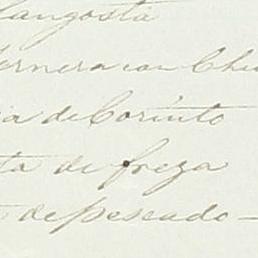 Langosta
ernera con Chi
ia de Corinto
ta de freza
de pescado —